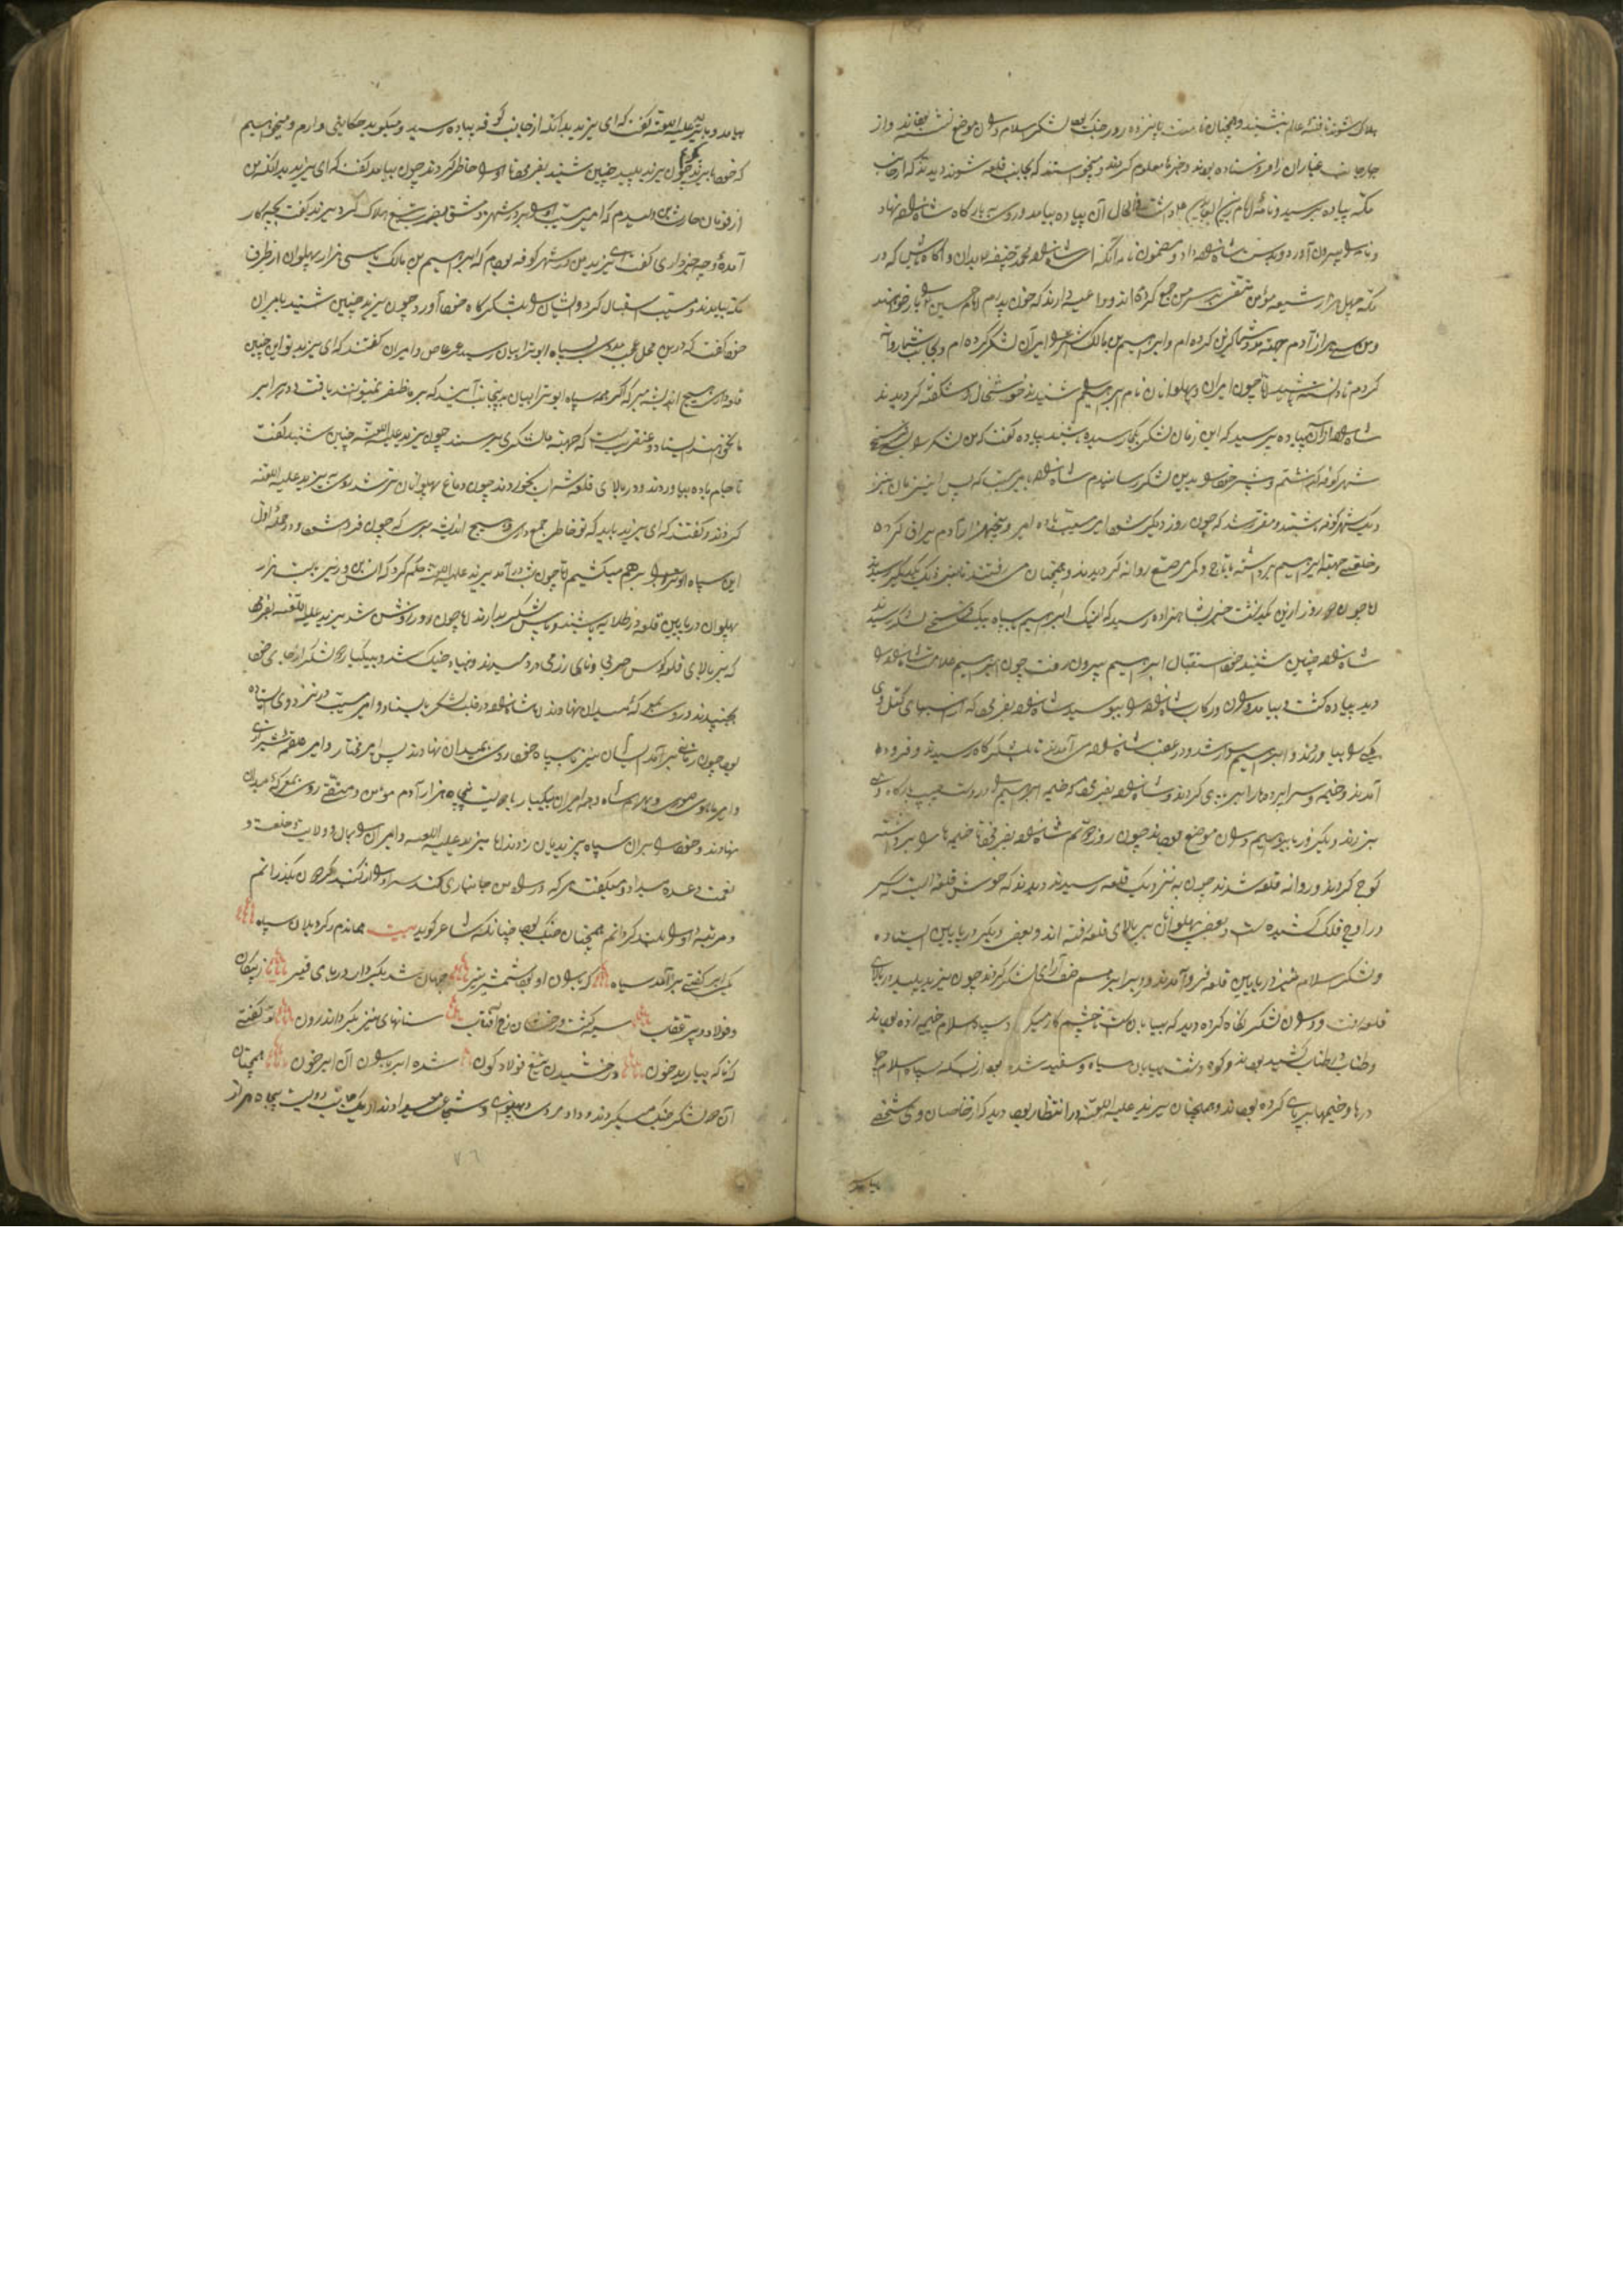 هلاک شوند تا فتنهٔ عالم بنشیند و همچنان تا مدت پانزده روز جنگ بود لشکر اسلام در آن موضع نشسته بودند و از
چهار جانب عیاران را فرستاده بودند و خبرها معلوم کردند و میخواستند که بجانب قلعه شوند دیدند که از جانب
مکه پیاده برسید و نامهٔ امام زین العابدین داشت فی الحال آن پیاده بیامد و روی به بارگاه شاهزاده نهاد
و نامه را بیرون آورد و بدست شاهزاده داد و مضمون نامه آنکه ای شاهزاده محمد حنیفه بدان و آگاه باش که در
مکه چهل هزار شیعه مؤمن متقی بر سر من جمع کرده‌اند و داعیه دارند که خون پدرم امام حسین را باز خواهند
و من سی هزار آدم جهة مدد شما گزین کرده‌ام و ابراهیم بن مالک اشتر را بر آن لشکر کرده‌ام و بجانب شما روانه
کردم تا دانسته باشید اما چون امیران و پهلوانان نام ابراهیم شنیدند خوشحال و شکفته گردیدند
شاهزاده از آن پیاده پرسید که این زمان لشکر بکجا رسیده باشند پیاده گفت که من لشکر را
شهر کوفه گذشتم و پیشتر خود را بدین لشکر رسانیدم شاهزاده با امیر مسیب گفت که پس این زمان نیز
نزدیک شهر کوفه باشند و مقرر شد که چون روز دیگر شود امیر مسیب با ده امیر و پنجهزار آدم یراق کرده
و خلعتی جهة ابراهیم برداشته با تاج و کمر مرصع روانه گردیدند و همچنان می رفتند تا نزدیک یکدیگر رسیدند
اما چون دو روز ازین بگذشت خبر بشاهزاده رسید که اینک ابراهیم با سپاه بیک فرسخی لشکر رسید
شاهزاده چنین شنید خود استقبال ابراهیم بیرون رفت چون ابراهیم علامت شاهزاده را
دید پیاده گشت و بیامد و ران و رکاب شاهزاده را ببوسید شاهزاده بفرمود که از اسبهای کتل وی
یکی را بیاورند و ابراهیم سوار شد و در عقب شاهزاده می آمدند تا بلشکرگاه رسیدند و فرود
آمدند و خیمه و سراپرده‌ها را برپای کردند و شاهزاده بفرمود که خیمه ابراهیم را در دست چپ بارگاه وی
بزدند و یک روز با ابراهیم در آن موضع بودند چون روز دوم شد شاهزاده بفرمود تا خیمه‌ها را برداشته
کوچ کردند و روانه قلعه شدند چون به نزدیک قلعه رسیدند دیدند که خوش قلعه ایست که سر
در اوج فلک کشیده است و بعضی پهلوانان بر بالای قلعه رفته‌اند و بعضی دیگر در پایین ایستاده
و لشکر اسلام نیز در پایین قلعه فرو آمدند و در برابر هم صف آرای لشکر کردند چون یزید پلید بر بالای
قلعه رفت و در آن لشکر نگاه کرده دید که بیابان و دشت تا چشم کار میکرد سپاه اسلام خیمه زده بودند
و طناب در طناب کشیده بودند و کوه و دشت و بیابان سیاه و سفید شده بود از بسکه سپاه اسلام
درها و خیمها برپای کرده بودند و همچنان یزید علیه اللعنه در انتظار بود دید که از خاصان وی شخصی
بیامد
بیامد و با یزید علیه اللعنه گفت که ای یزید بدانکه از جانب کوفه پیاده رسید و میگوید حکایتی دارم و میخواهیم
که خود با یزید گویم چون یزید پلید چنین شنید بفرمود تا او را حاضر کردند چون بیامد گفت که ای یزید بدانکه من
از قومان حارث بن ... که امیر مسیب او را در شهر دمشق بضرب تیغ هلاک کرد یزید گفت بچه کار
آمده‌ٔ و چه خبر داری گفت ای یزید من در شهر کوفه بودم که ابراهیم بن مالک با سی هزار پهلوان از طرف
مکه بیامدند و مسیب استقبال کرد و ایشان را بلشکرگاه خود آورد چون یزید چنین شنید با امیران
خود گفت که درین محل عجب مددی بسپاه ابو ترابیان رسید عمر عاص و امیران گفتند که ای یزید تو این چنین
قلعه داری هیچ اندیشه مبر که اگر همه سپاه ابو ترابیان بدینجانب آیند که بر ما ظفر نمیتوانند یافت و در برابر
ما نخواهند ایستاد و عنقریب است که جهة ما لشکری برسند چون یزید علیه اللعنه چنین شنید گفت
تا جام باده بیاوردند و در بالای قلعه شراب بخوردند چون دماغ پهلوانان تر شد روی به یزید علیه اللعنه
کردند و گفتند که ای یزید باید که تو خاطر جمع داری و هیچ اندیشه مبری که چون فردا شود در حملهٔ اول
این سپاه او را بر هم میکشیم اما چون شب در آمد یزید علیه اللعنه حکم کرد که انس وزیر با بیست هزار
پهلوان در پایین قلعه در طلایه باشند و پاس لشکر بدارند اما چون روز روشن شد یزید علیه اللعنه بفرمود
که بر بالای قلعه کوس حربی و نای رزمی در دمیدند و بنیاد جنگ شد و بیکبار دو لشکر از جای خود
بجنبیدند و روی بمعرکه میدان نهادند شاهزاده در قلب لشکر بایستاد و امیر مسیب در نزد وی ایستاده
بود چون زمانی برآمد ایشان نیز با سپاه خود روی بمیدان نهادند پس امیر مختار و امیر علقمه شیر
و امیر طاوس ... و بهرام شاه و همه امیران بیکبار با دویست و پنجاه هزار آدم مؤمن و متقی روی بمعرکه میدان
نهادند و خود را بر آن سپاه یزیدیان زدند اما یزید علیه اللعنه و امیران را بمال و ولایت و خلعت و
نعمت وعده میداد و میگفت هر که در راه من جانسپاری کند سر او را از گنبد گردون بگذرانم
و مرتبهٔ او را بلند گردانم همچنان جنگ بود چنانکه شاعر گوید بیت هماندم ز گرد یلان سپاه
یکی ابر گفتی برآمد سیاه که باران او بود شمشیر تیز جهان شد بکردار دریای قیر ز پیکان
و فولاد و پر عقاب سیه گشت رخشان رخ آفتاب سنانهای نیز بکردار اندرون تو گفتی
که ناگه ببارید خون درخشیدن تیغ فولاد گون شده ابر باران آن ابر خون همچنان
آن دو لشکر جنگ میکردند و داد مردی و پهلوی و شجاعی میدادند از یک جانب دویست پنجاه هزار
٧٦